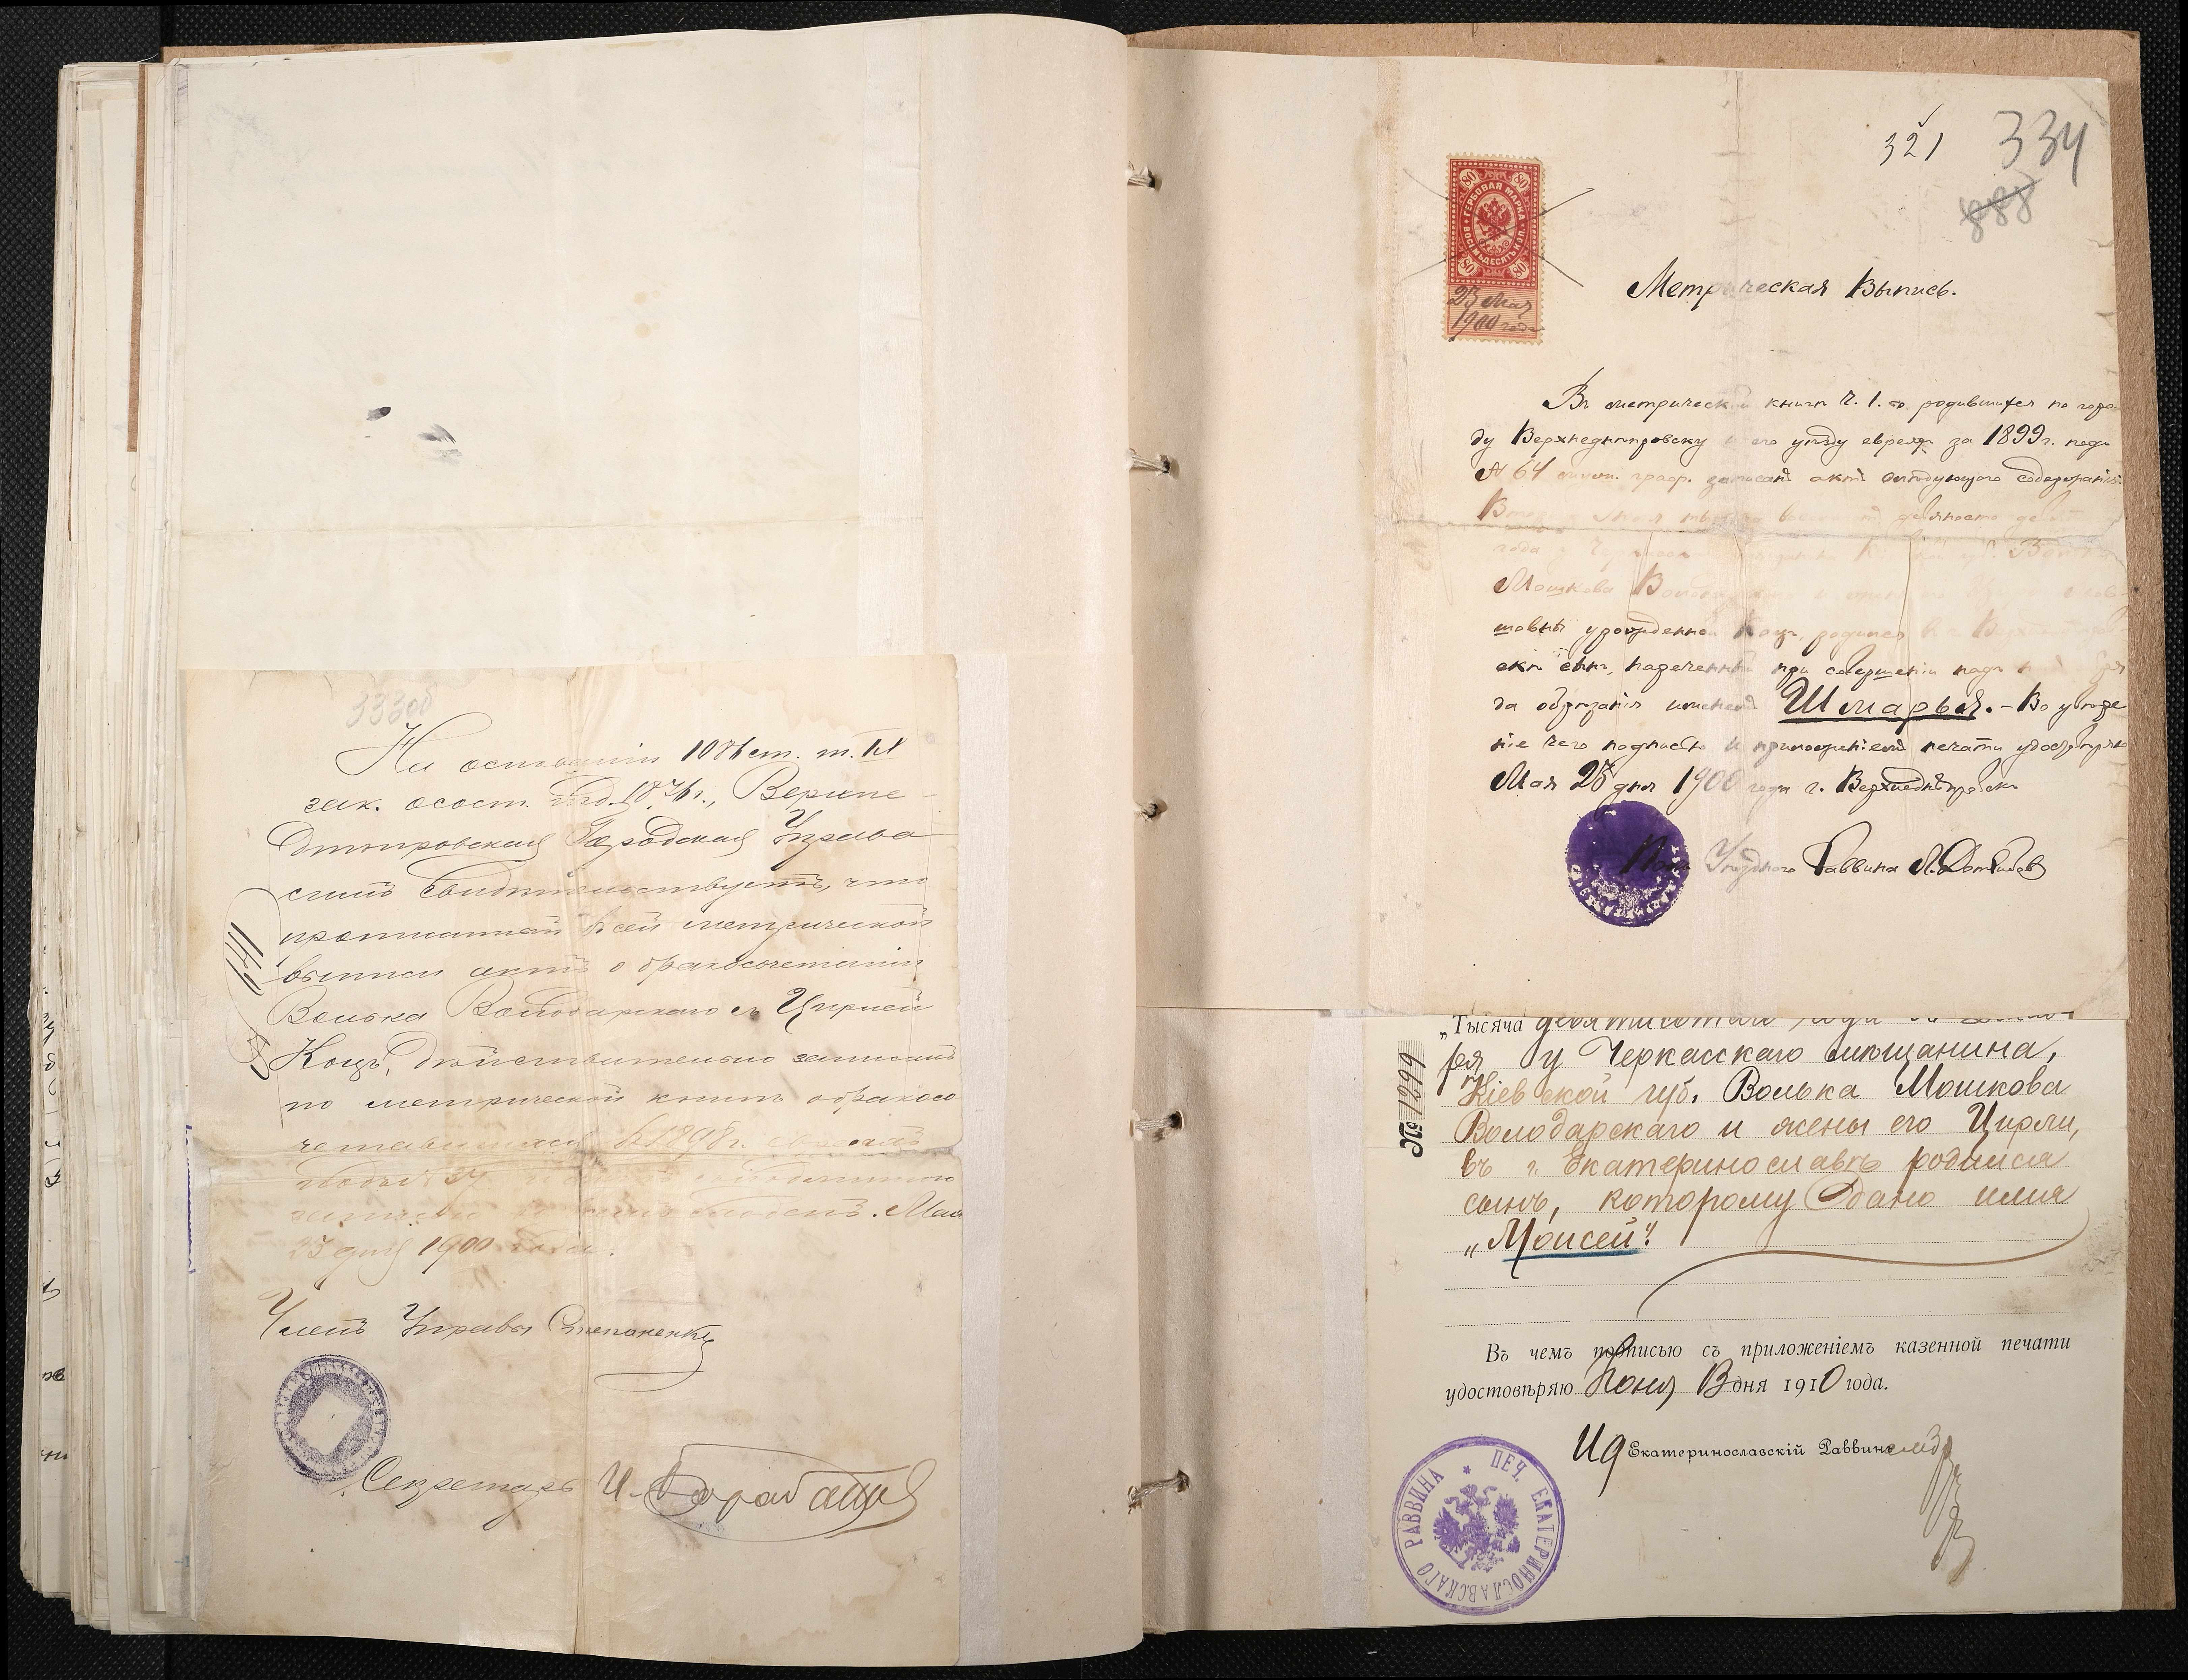 333об
На основаніи 1086 ст. т. IX
зак. о сост. изд. 1876 г., Верхне-
днѣпровская Городская Управа
симъ свидѣтельствуетъ, что
прописанный въ сей метрической
выписи актъ о бракосочетаніи
Волька Володарскаго съ Цирлей
Коцъ, дѣйствительно записанъ
по метрической книгѣ о бракосо
четавшихся въ 1898 г.
23 дня 1900 года.
Мая
Членъ Управы Степаненко
Секретарь И. Барабашъ
321 334
888
80 80
ГЕРБОВАЯ МАРКА
ВОСЕМЬДЕСЯТЪ КОП.
80 80
23 Мая
1900 года
Метрическая Выпись.
Въ метрической книгѣ ч. 1. о родившихся по горо
ду Верхнеднѣпровску и его уѣзду евреяхъ за 1899 г. подъ
№ 64 граф. записанъ актъ слѣдующаго содержанія:
девяносто
года
Мошкова
шовны урожденной Коцъ, родился въ
скѣ сынъ, нареченный при совершеніи надъ
да обрѣзанія именемъ Шмарья. – Во увѣре
ніе чего подписью и приложеніемъ печати удостовѣряю
Мая 23 дня 1900 года г. Верхнеднѣпровскъ
Уѣзднаго Раввина
„Тысяча девятисотаго года
ря у Черкасскаго мѣщанина,
Кіевской губ. Волька Мошкова
Володарскаго и жены его Цирли,
въ г. Екатеринославѣ родился
сынъ, которому дано имя
„Моисей".
№ 1299
Въ чемъ подписью съ приложеніемъ казенной печати
удостовѣряю Іюня 13 дня 1910 года.
И д Екатеринославскій Раввинъ
ПЕЧ. ЕКАТЕРИНОСЛАВСКАГО РАВВИНА